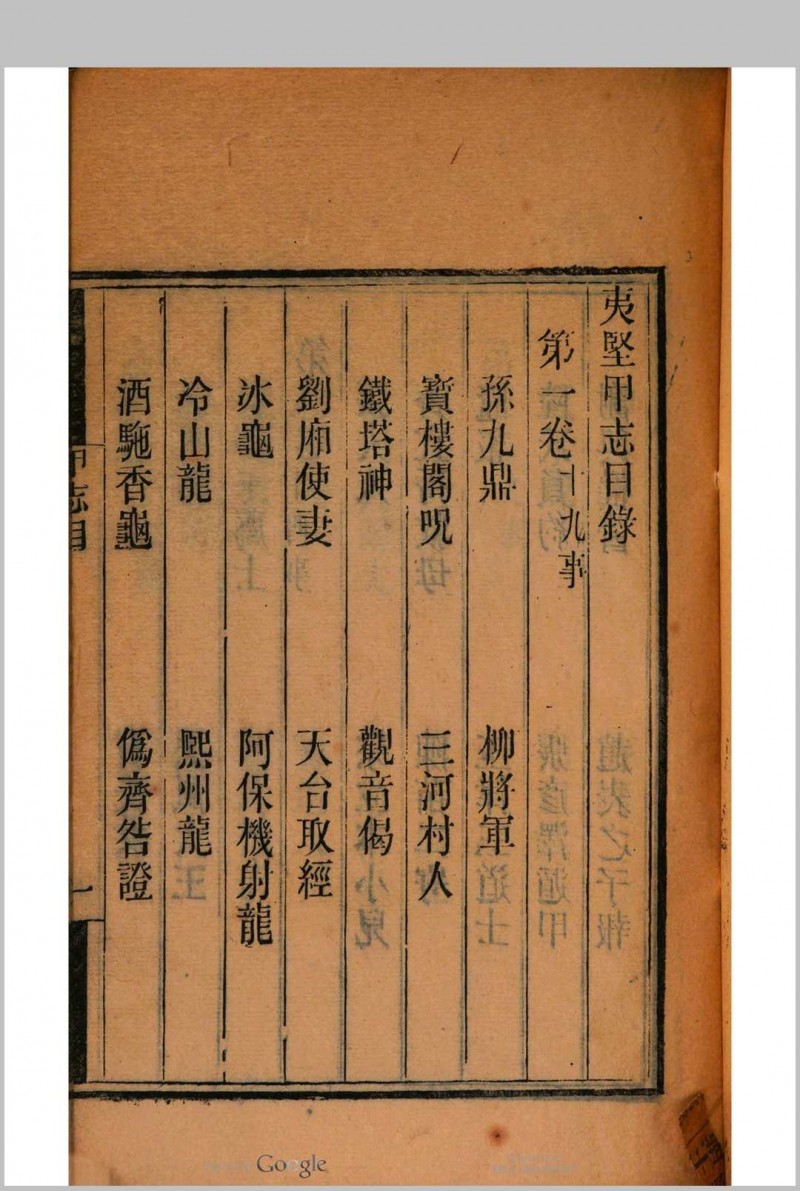 夷堅甲志目錄
第一卷十九事
孫九鼎
柳將軍
寳樓閣呪
三河村人
鐵塔神
觀音偈
劉廂使妻
天台取經
冰龜
阿保機射龍
冷山龍
熙州龍
酒駞香龜
僞齊咎證
甲志目
一
Google